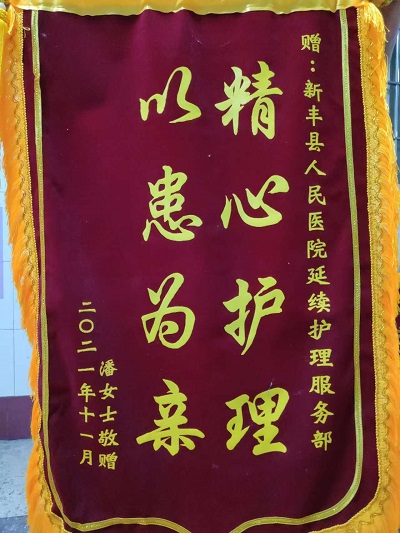 赠：新丰县人民医院延续护理服务部
精心护理
以患为亲
潘女士敬赠
二〇二一年十一月